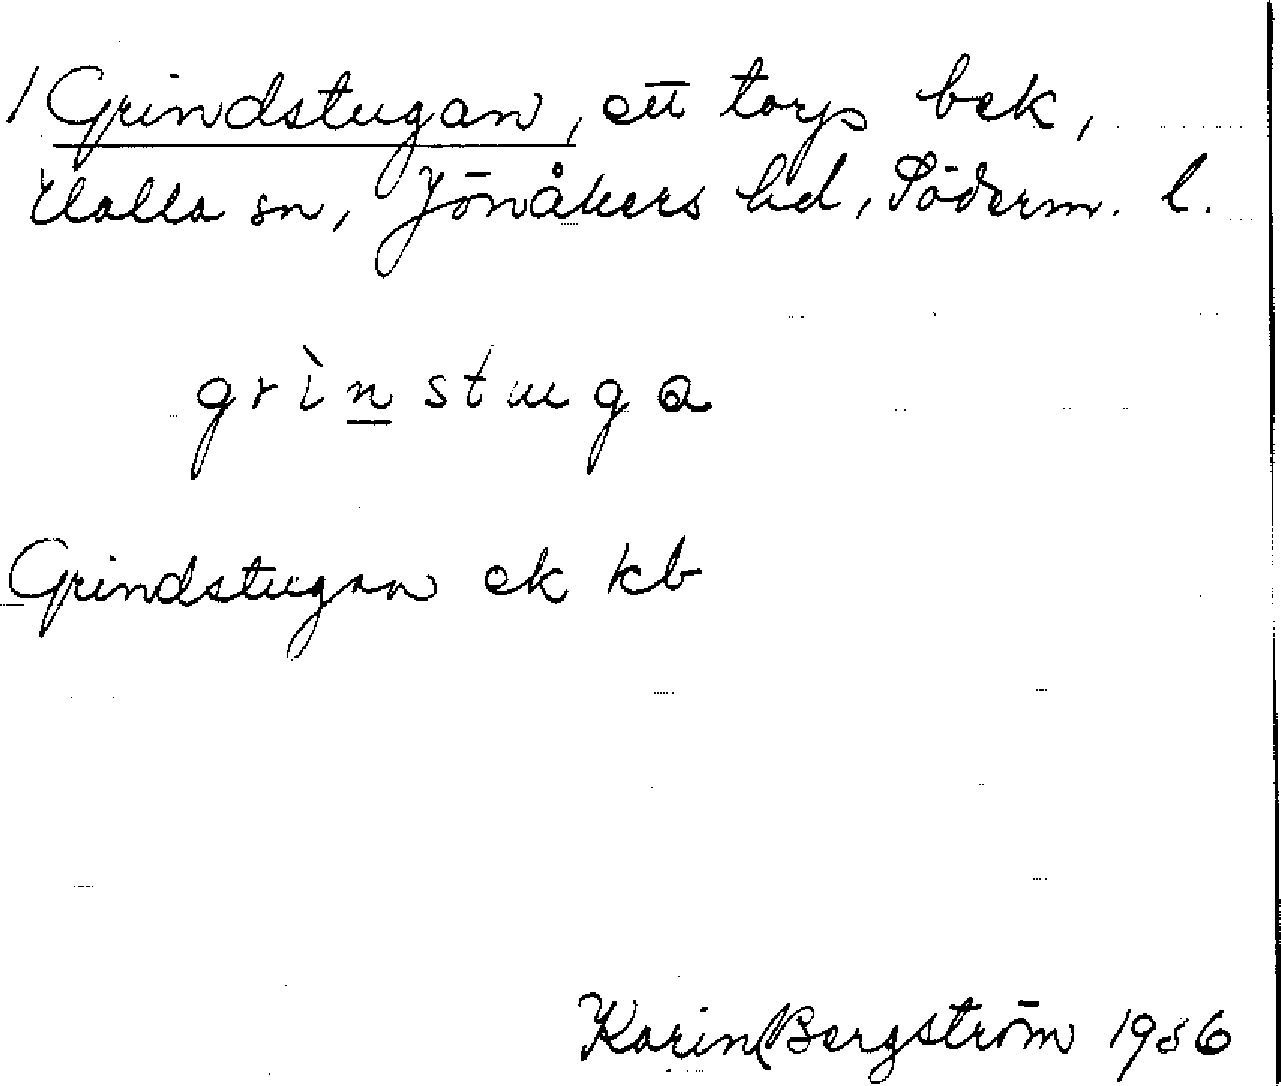 1 Grindstugan, ett torp bek,
Halla sn, Jönåkers hd, Söderm. l.
grìnstuga
Grindstugan ek kb
Karin Bergström 1956